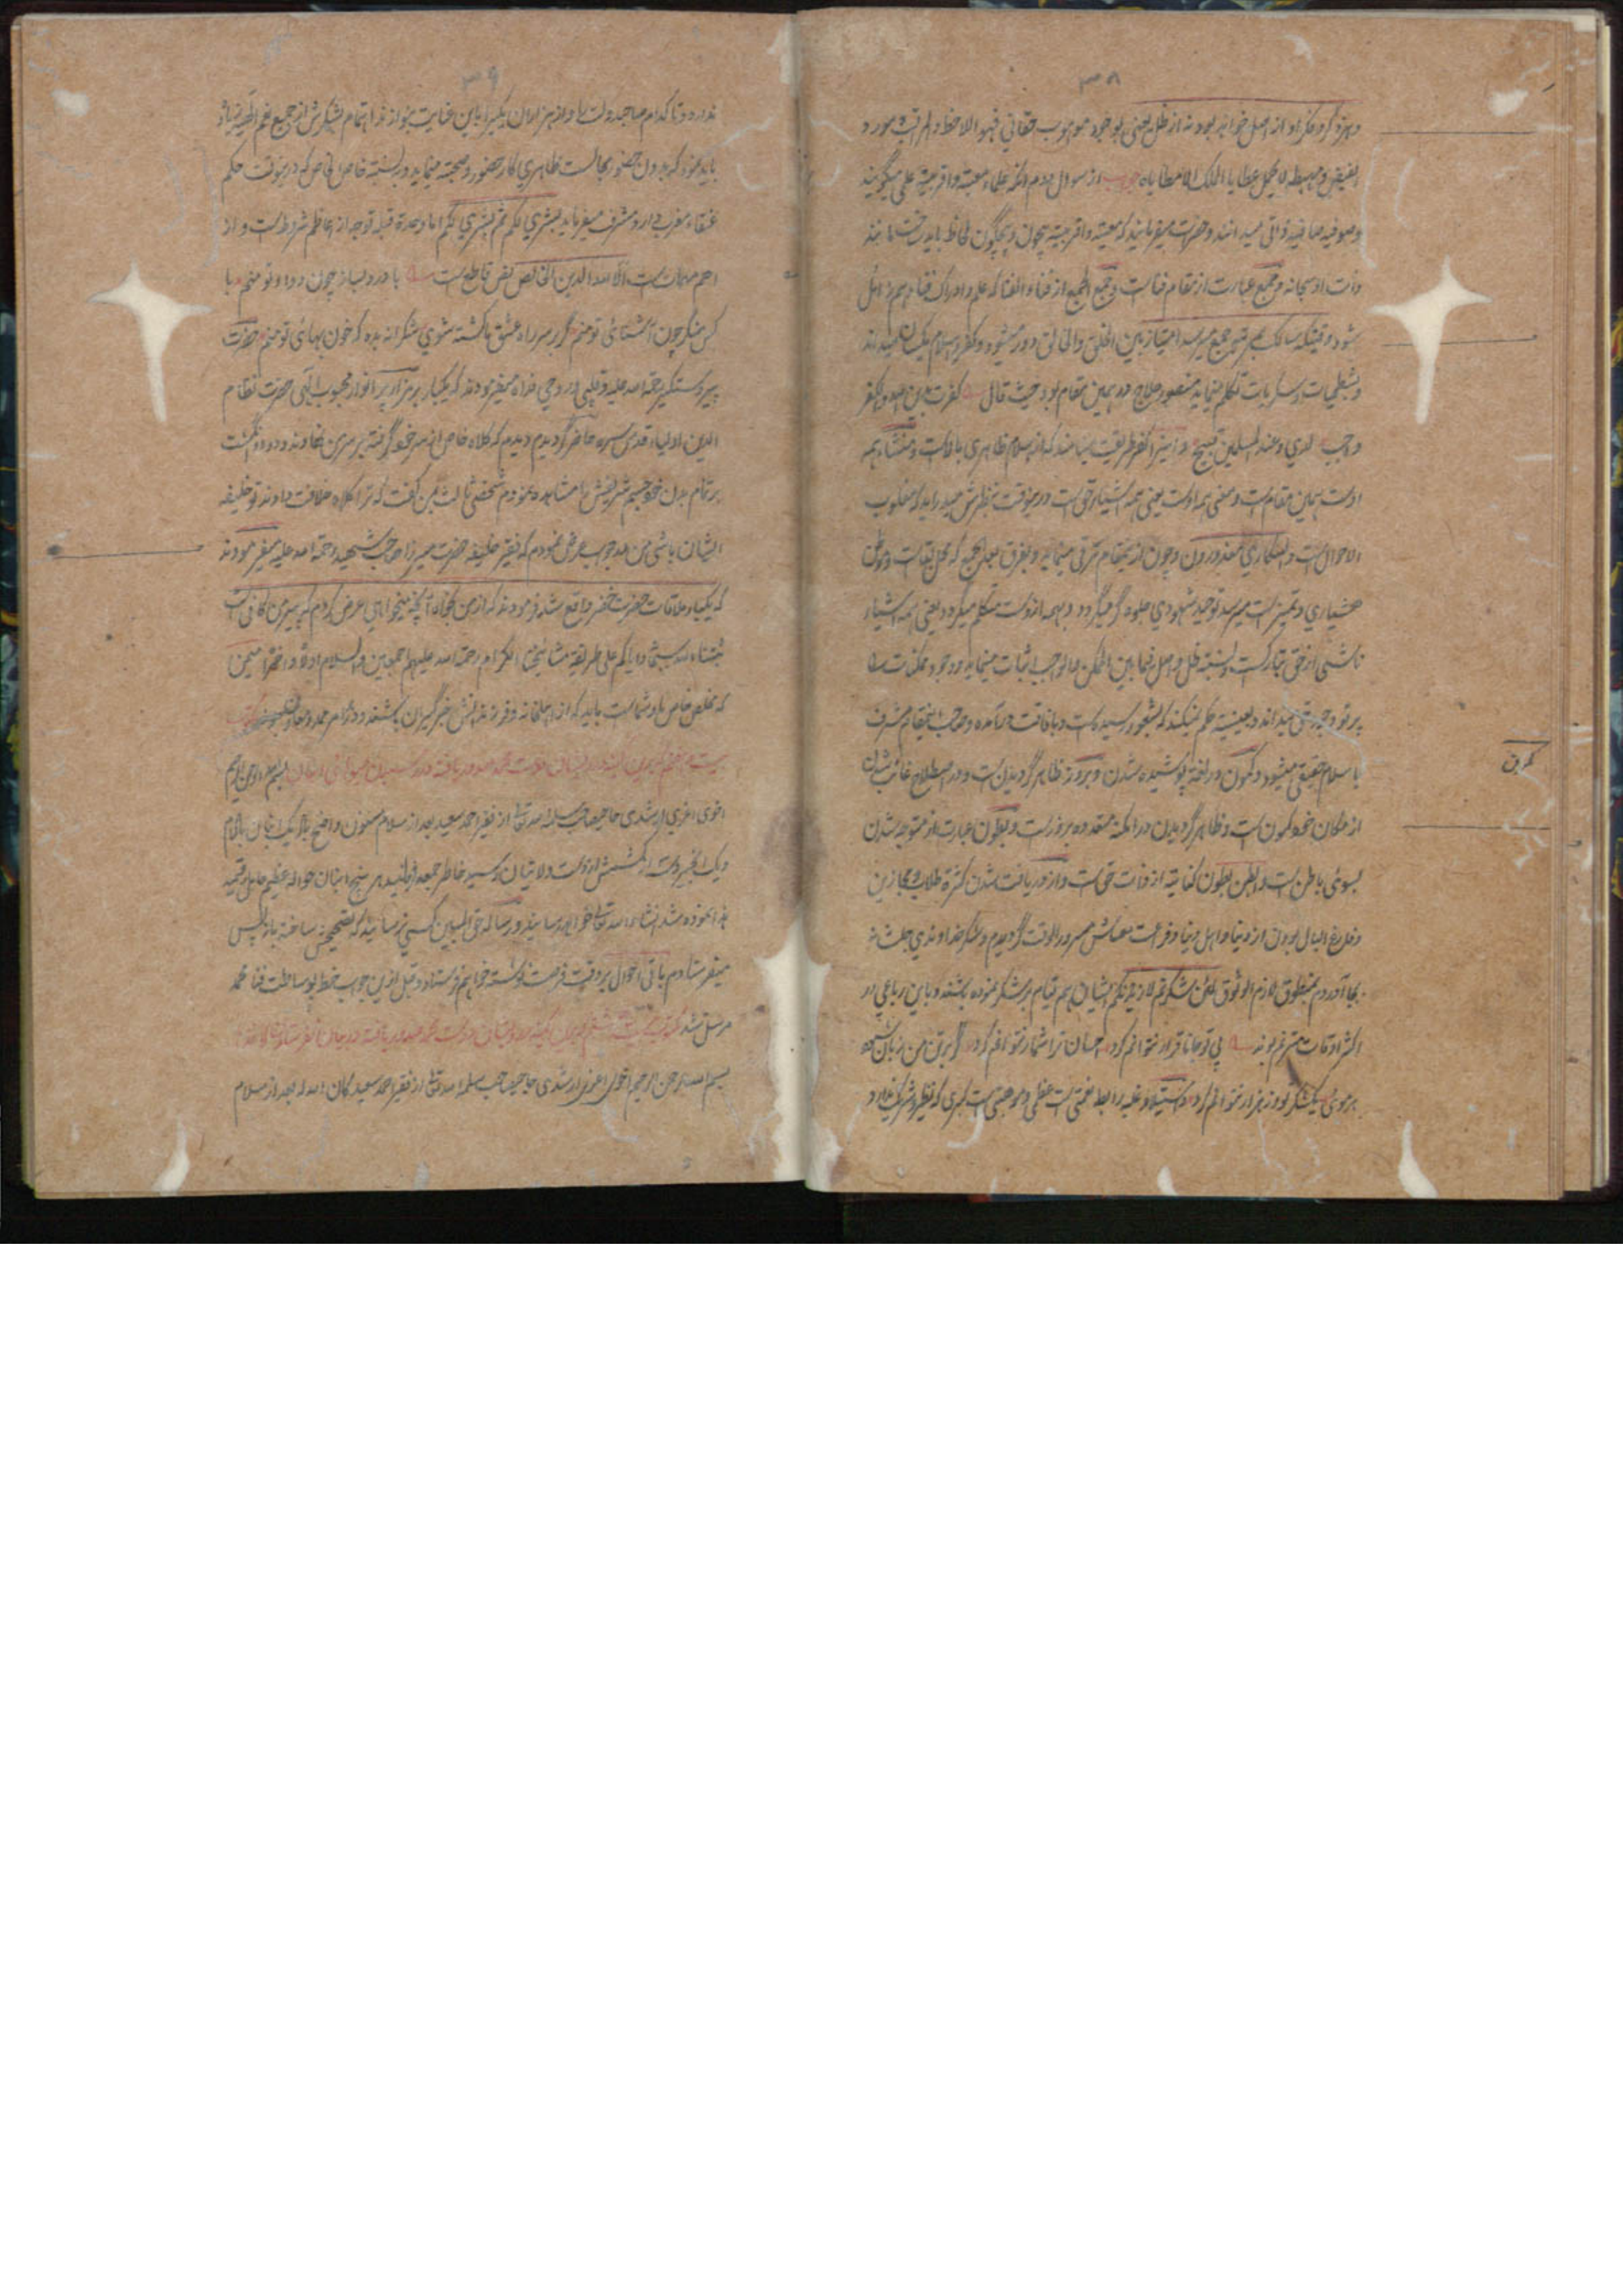 ۳۸
و بهره گر و مگر او از اصل خواهد بود نه از ظل یعنی بوجود موهوب حقانی فهو الاحظ و المرقب مورد
الفیض و مهبط لا یحمل عطایا الملک الا مطایاه از سوال مردم آنکه علماء معیته و اقربیته علمی میگویند
و صوفیه صافیه ذاتی میدانند و حضرت میفرمایند که معیته و اقربیته بیچون و بیچگون لحاظ باید ساخت مانند
ذات او سبحانه و جمع عبارت از مقام فنا است و جمع الجمع از فناء الفنا که علم و ادراک فنا هم زائل
شود وقتیکه سالک بمرتبه جمع میرسد امتیاز بین الخلق و الخالق دور میشود و کفر و اسلام یکسان میداند
و بشطحیات و سکریات تکلم مینماید منصور حلاج در همین مقام بود حیث قال کفرت بدین الله و الکفر
واجب لدی و عند المسلمین قبیح و این را کفر طریقت مینامند که از اسلام ظاهری بالاست و منشاء همه
اوست همین مقام است و معنی همه اوست یعنی همه اشیاء حق است درینوقت بنظرش میدرآید که مغلوب
الاحوال است و السکاری معذورون و چون ازین مقام ترقی مینماید و بفرق بعد الجمع که محل بقا است و موطن
هشیاری و تمیز است میرسد توحید شهودی جلوه گر میگردد و بهمه ازوست متکلم میگردد یعنی همه اشیاء
ناشی از حق تبارک است و نسبته ظل و اصل فیما بین الممکن و الواجب اثبات مینماید و وجود ممکنات را
پرتو وجود حق میداند و بعینیته حکم نمیکند که بشعور رسیده است و بافاقت درآمده و صاحب اینمقام مشرف
با سلام حقیقی میشود و کمون در لغة پوشیده شدن و بروز ظاهر گردیدن است و در اصطلاح غائب شدن
از مکان خود کمون است و ظاهر گردیدن در امکنه متعدده بروز است و بطون عبارت از متوجه شدن
بسوی باطن است و ابطن بطون کنایته از ذات حق است و از دریافت شدن کثرة طلاب مجازین
و فارغ البال بودن از دنیا و اهل دنیا و فراغت معاش مسرور الوقت گردیدم و شکر خداوندی جلت شانه
بجا آوردم بمنطوق لازم الوثوق لئن شکرتم لازیدنکم ایشان هم قیام بر شکر نموده باشند و باین رباعی در
اکثر اوقات مترنم بوند بی تو جانا قرار نتوانم کرد احسان ترا شمار نتوانم کرد گر بر تن من زبان شود
هر موی یک شکر تو از هزار نتوانم کرد استیلاء و غلبه رابط نعمتی است عظمی و موهبتی است کبری که نظیر و شریک ندارد
کمون
۳۹
ندارد و تا کدام صاحبدولت را و از هزاران یکی را باین عنایت بنوازند اهتمام بشکرش از جمیع نعم الهیه زیاد
باید نمود که بدون حضور مجالست ظاهری کار حضور و صحبته مینماید و به نسبته خاص خاص که درینوقت حکم
عنقاء مغرب دارد مشرف میفرماید بشری لکم ثم بشری لکم اما وحدة قبله توجه از اعاظم شروط است و از
اهم مهمات است الا لله الدین الخالص نص قاطع است با درد بساز چون دوا تو منم با
کس منگر چون آشنائی تو منم گر بر سر راه عشق ما کشته شوی شکرانه بده که خون بهائی تو منم حضرت
پیر دستگیر رحمة الله علیه و قلبی و روحی فداه میفرمودند که یکبار بر مزار پر انوار محبوب الهی حضرت نظام
الدین اولیا قدس سره حاضر گردیدم دیدم که کلاه خاص از سر خود گرفته بر سر من نهادند و دو انگشت
بر تمام بدن خود جسم شریفش را مشاهده نمودم شخص ثالث بمن گفت که ترا کلاه خلافت دادند تو خلیفه
ایشان باشی من در جواب عرض نمودم که فقیر خلیفه حضرت میرزا صاحب شهید رحمة الله علیه میفرمودند
که یکبار ملاقات حضرت خضر واقع شد فرمودند که از من بخواه آنچه میخواهی عرض کردم که پیر من کافی است
ثبتنا الله سبحانه و ایاکم علی طریقة مشایخنا الکرام رحمة الله علیهم اجمعین و السلام اولا و اخرا
که مخلص خاص ما و شما است باید که از اهلخانه و فرزندانش خبرگیران باشند و در امر ممد و معاون
بسم الله الرحمن الرحیم
اخوی اعزی ارشدی حاجیصاحب سلمه الله تعالی از فقیر احمد سعید بعد از سلام مسنون واضح باد
رسید خاطر جمع فرمایند
نموده شد انشاء الله تعالی خواهد رسانید و رساله حق المبین کسی نرسانید که تصحیح ساخته باز پس
میفرستادم باقی احوال بر وقت فرصت نوشته خواهم فرستاد و قبل ازین جواب خط بوساطت
مرسل شد
بسم الله الرحمن الرحیم اخوی اعزی ارشدی حاجیصاحب سلمه الله تعالی از فقیر احمد سعید کان الله له بعد از سلام